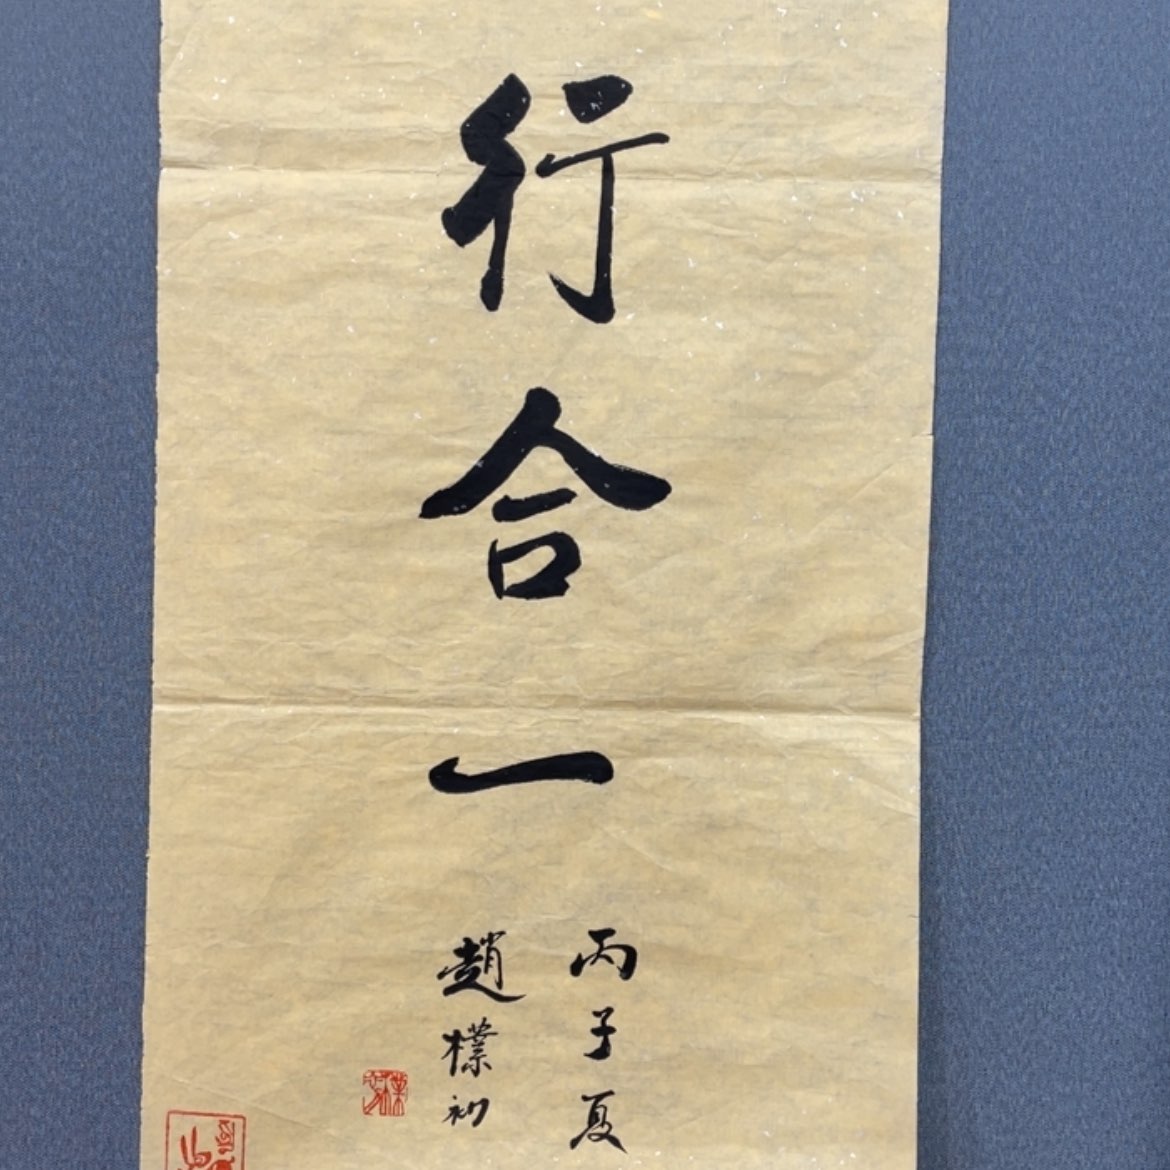 行合一
丙子夏
趙樸初